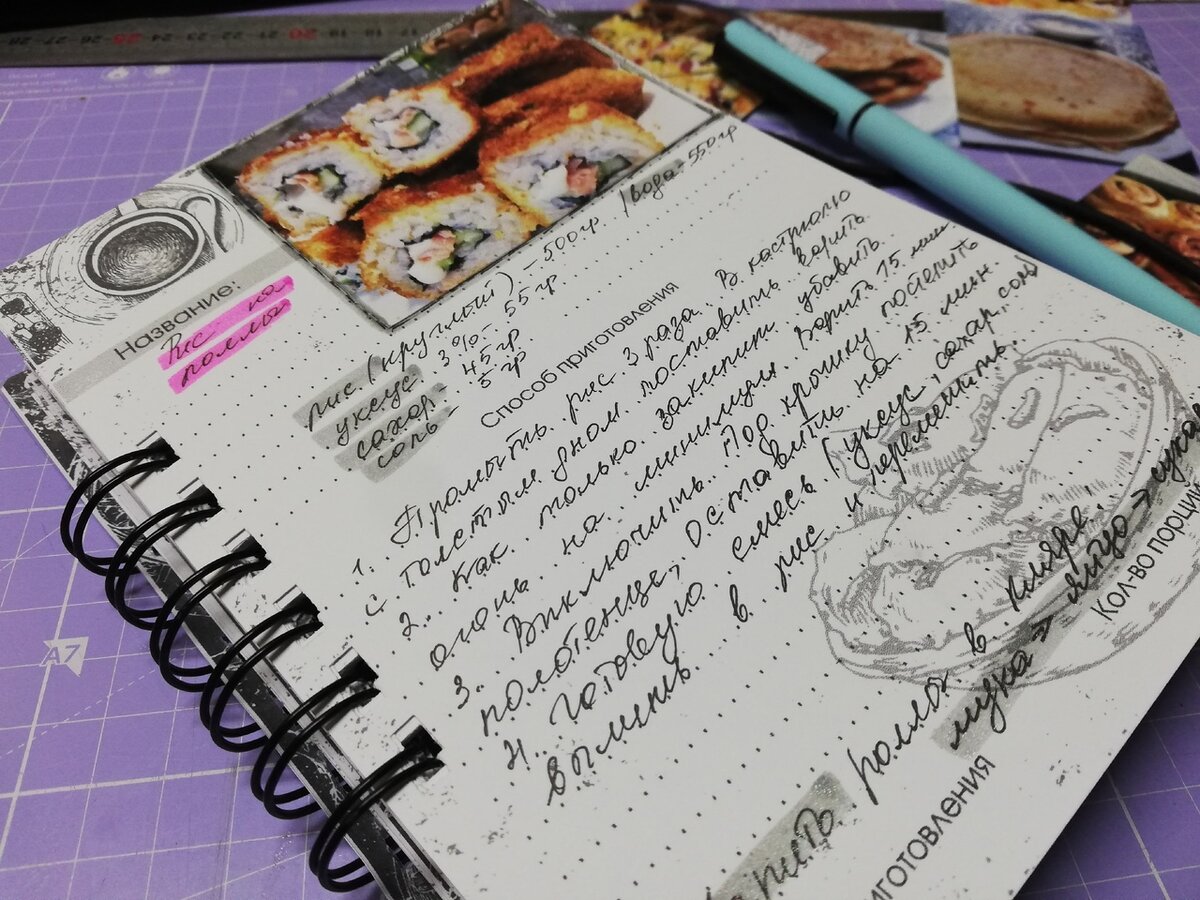 Название:
Рис на
роллы
рис (круглый) - 500гр. / вода - 550гр
уксус 3% - 55 гр
сахар - 45 гр
соль - 5 гр
Способ приготовления
1. Промыть рис 3 раза. В кастрюлю
с толстым дном поставить варить.
2. Как только закипит убавить
огонь на минимум. Варить 15 мин
3. Выключить. Под крышку постелить
полотенце, оставить на 15 мин.
4. Готовую смесь (уксус, сахар, соль)
вылить в рис и перемешить.
роллы в кляре.
мука → яйцо → суха
Кол-во порци
иготовления
A7